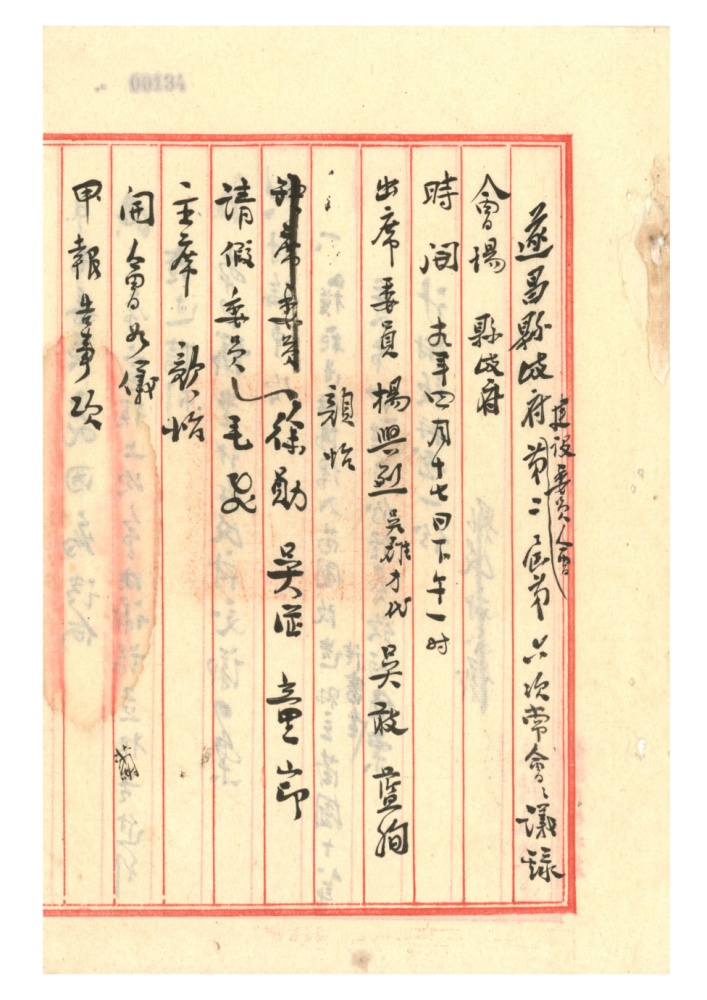 00134
遂昌縣政府建設委員會第二屆第六次常會會議錄
會場 縣政府
時間 九年四月十七日下午一时
出席委員 楊興烈 吳雄才代 吳敢 藍狗
顏怡
缺席委員 徐勛 吳巫 童節
請假委員 毛
主席 顏怡
開會如儀
甲報告事項